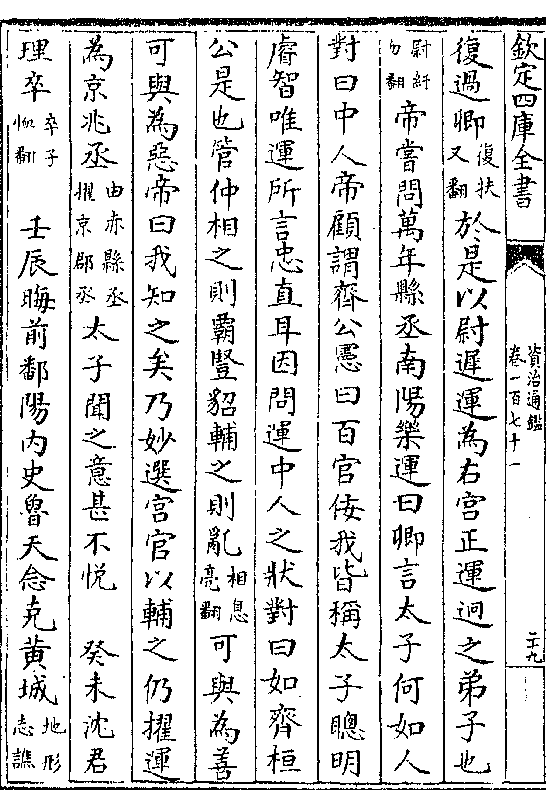 欽定四庫全書
資治通鑑
卷一百七十一
二十九
復過卿復扶又翻於是以尉遲運為右宫正運迥之弟子也
尉紆勿翻帝嘗問萬年縣丞南陽樂運曰卿言太子何如人
對曰中人帝顧謂齊公憲曰百官佞我皆稱太子聰明
睿智唯運所言忠直耳因問運中人之狀對曰如齊桓
公是也管仲相之則霸豎貂輔之則亂相息亮翻可與為善
可與為惡帝曰我知之矣乃妙選宫官以輔之仍擢運
為京兆丞由赤縣丞擢京郡丞太子聞之意甚不悦 癸未沈君
理卒卒子恤翻 壬辰晦前鄱陽内史魯天念克黄城地形志譙